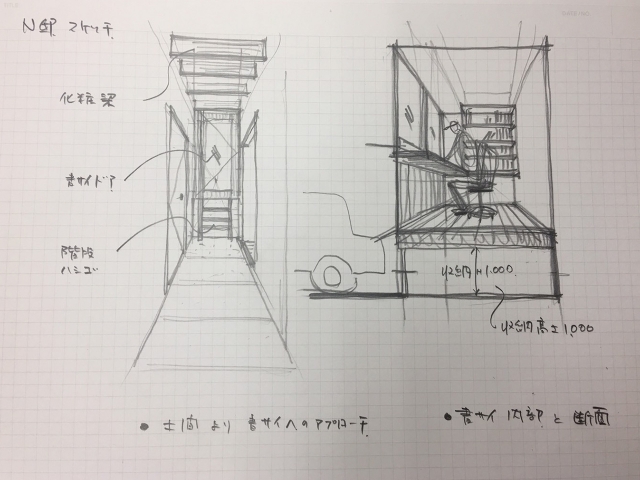 N邸 スケッチ
化粧梁
書サイドア
階段
ハシゴ
収納H1.000
収納高さ1,000
● 土間より 書サイへのアプローチ
● 書サイ 内部と断面